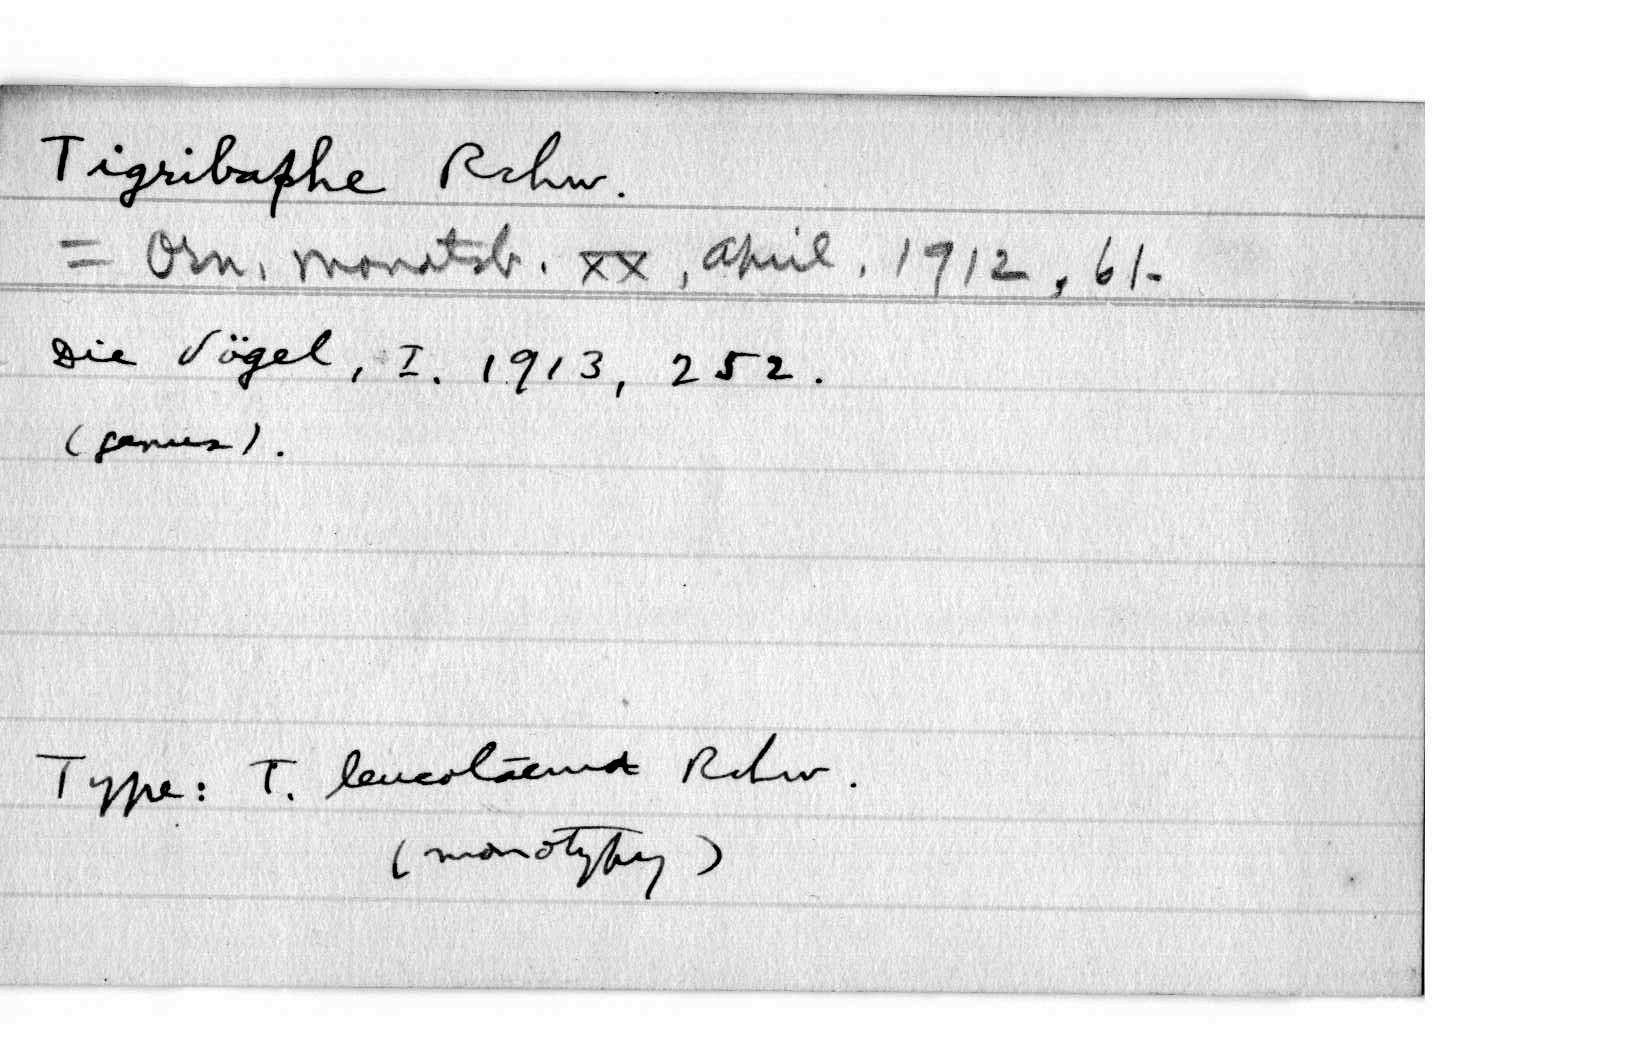 Tigribaphe Rchw.
= Orn. Monatsb. XX, April. 1912, 61.
Die Vögel, I. 1913, 252.
(genus).
Type: T. leucolaema Rchw.
(monotypy)